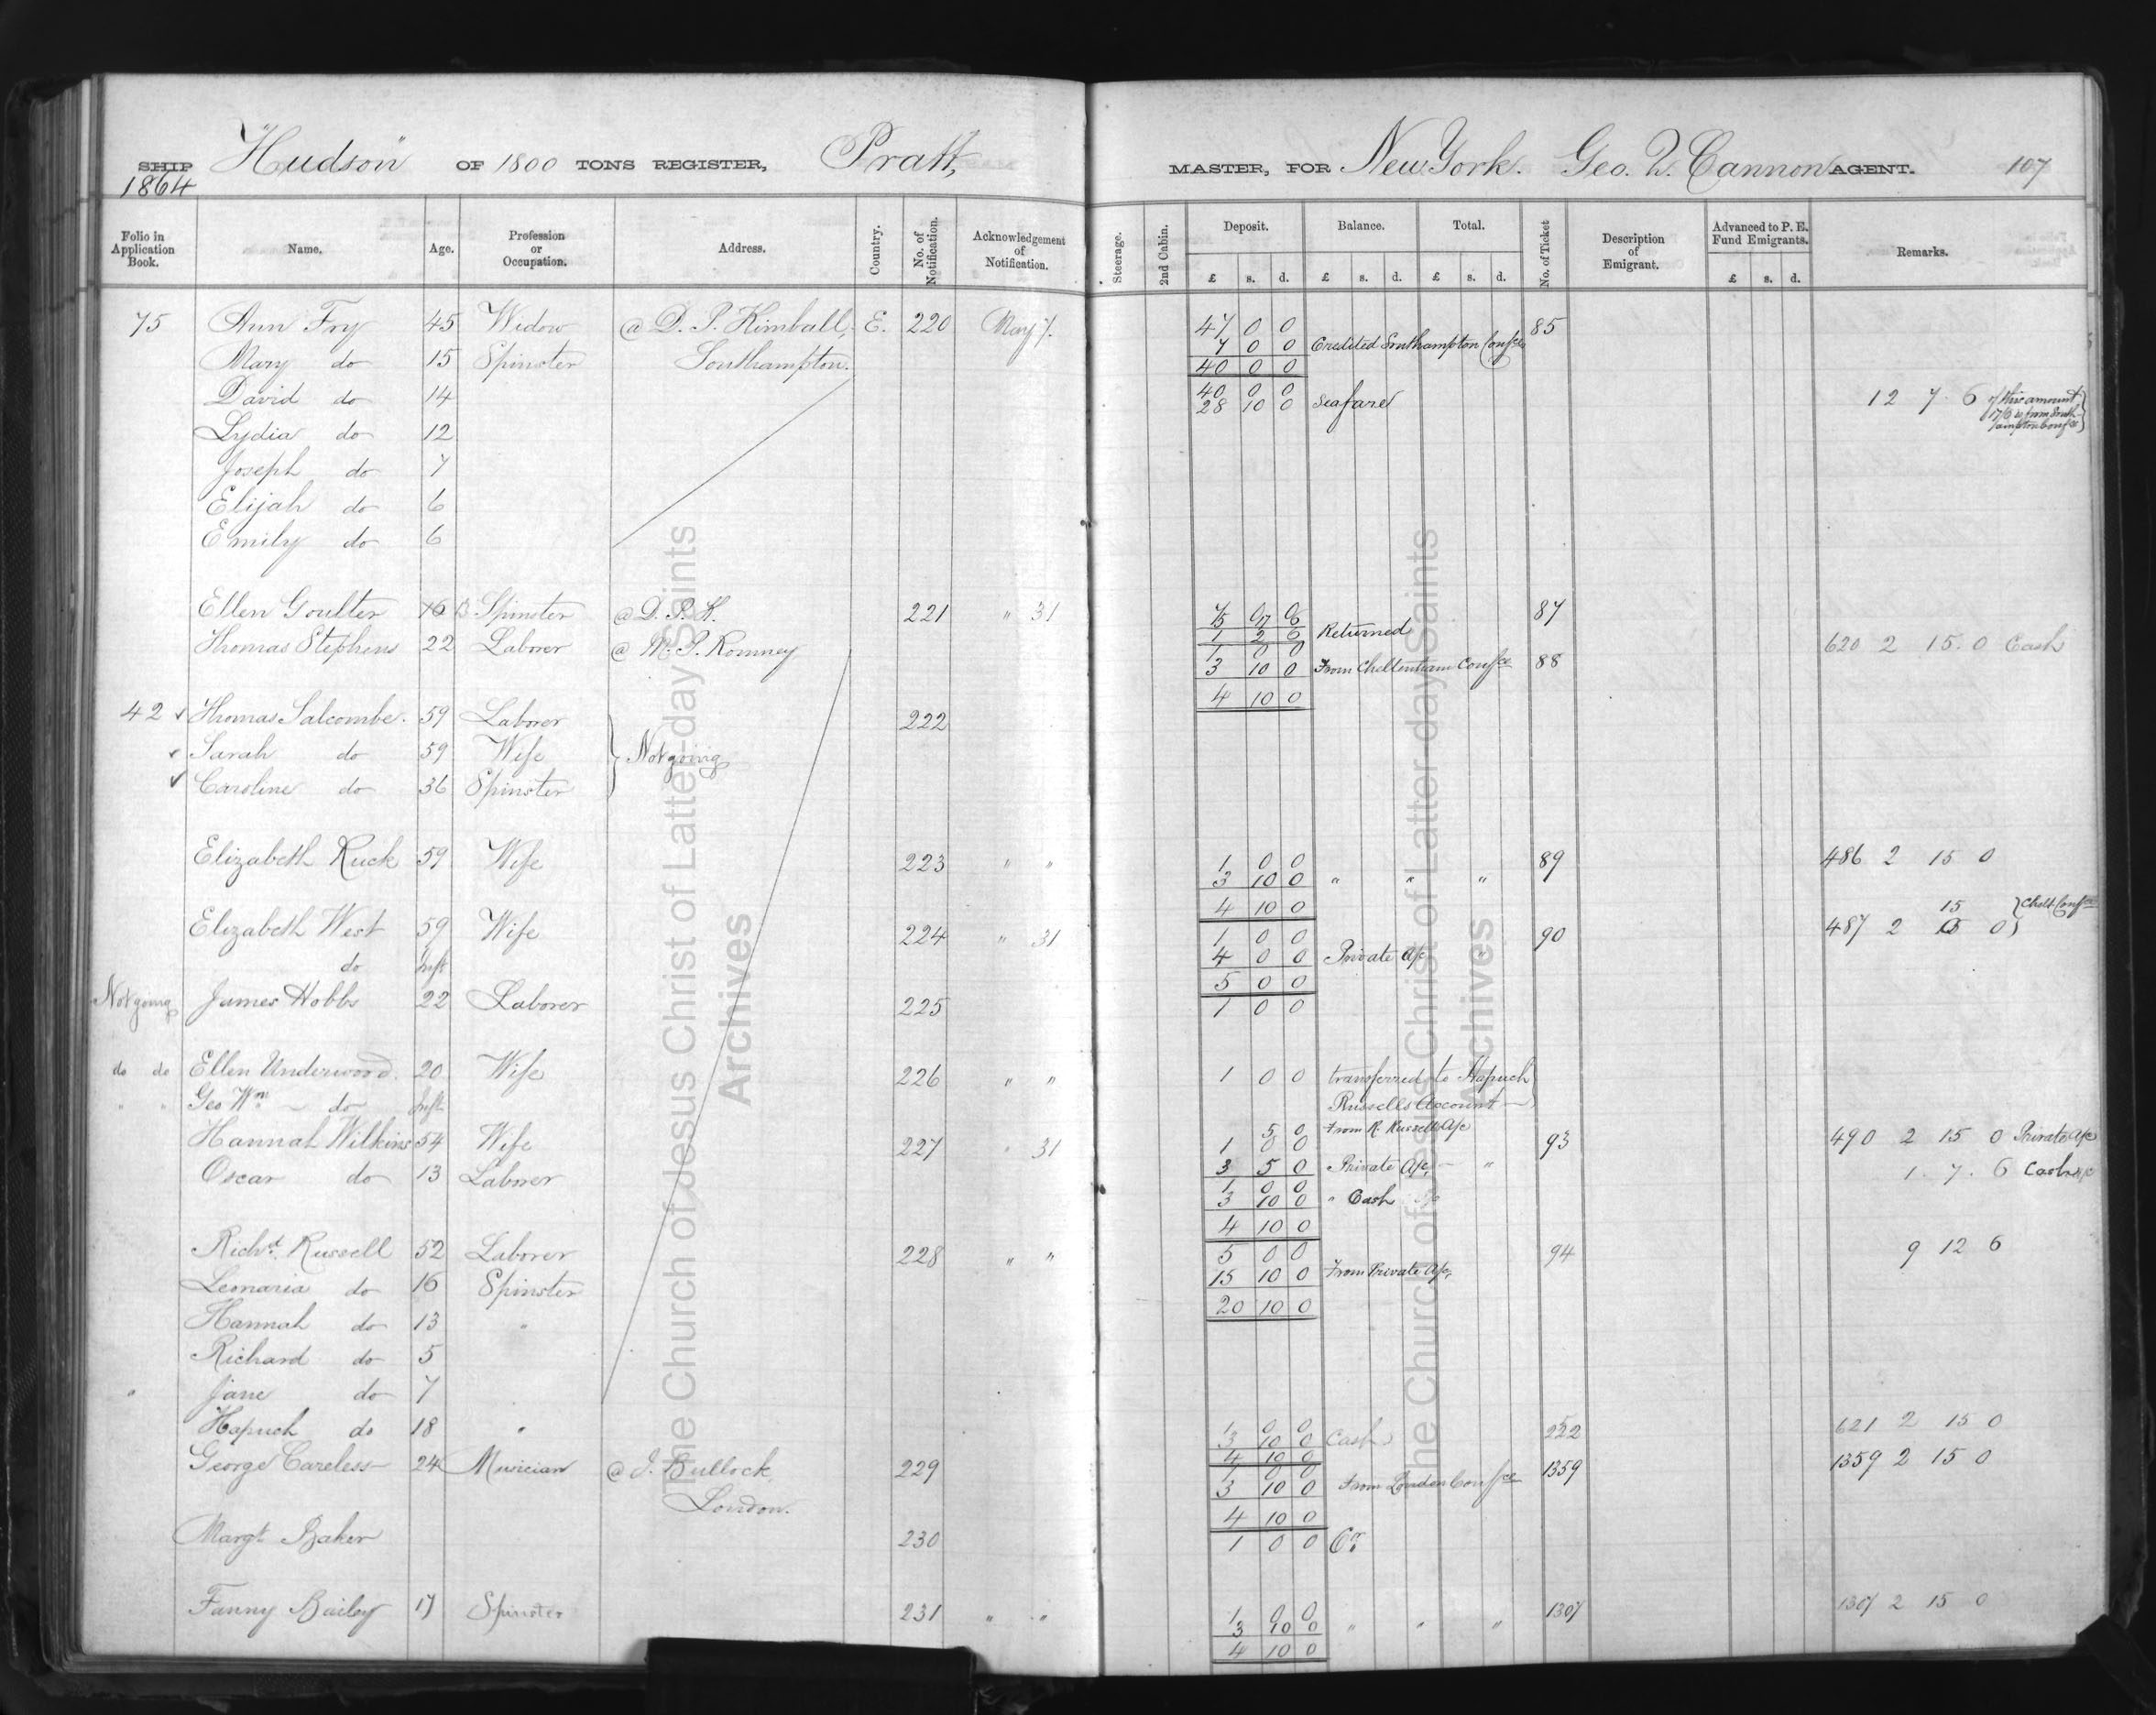 SHIP "Hudson" OF 1800 TONS REGISTER, Pratt, MASTER, FOR New York. Geo. Q. Cannon AGENT. 107
1864
Folio in Application Book. Name. Age. Profession or Occupation. Address. Country. No. of Notification. Acknowledgement of Notification. Steerage. 2nd Cabin. Deposit. £ s. d. Balance. £ s. d. Total. £ s. d. No. of Ticket Description of Emigrant. Advanced to P. E. Fund Emigrants. £ s. d. Remarks.
75 Ann Fry 45 Widow @ D. P. Kimball, E. 220 May 7. 47 0 0 85
7 0 0 Credited Southampton Confce
Mary do 15 Spinster Southampton. 40 0 0
David do 14 40 0 0
28 10 0 Sea fare 12 7 6 of this amount 17/6 is from Southampton Confce
Lydia do 12
Joseph do 7
Elijah do 6
Emily do 6
Ellen Goulter 16 Spinster @ D. P. K. 221 " 31 87
1 2 6 Returned
Thomas Stephens 22 Laborer @ M. P. Romney 1 0 0 620 2 15 0 Cash
3 10 0 From Cheltenham Confce 88
4 10 0
42 ✓ Thomas Salcombe. 59 Laborer 222
✓ Sarah do 59 Wife } Not going
✓ Caroline do 36 Spinster
Elizabeth Ruck 59 Wife 223 " " 1 0 0 89 486 2 15 0
3 10 0 " " "
4 10 0
Elizabeth West 59 Wife 224 " 31 1 0 0 90 487 2 15 0 } Chelt Confce
4 0 0 Private a/c "
do Inft
5 0 0
Not going James Hobbs 22 Laborer 225 1 0 0
do do Ellen Underwood. 20 Wife 226 " " 1 0 0 transferred to Hapuch
" " Geo Wm do Inft Russells Account
5 0 From R. Russells a/c
Hannah Wilkins 54 Wife 227 " 31 1 0 0 93 490 2 15 0 Private a/c
3 5 0 Private a/c "
Oscar do 13 Laborer 1 0 0 1. 7. 6 Cash a/c
3 10 0 " Cash
4 10 0
Richd. Russell 52 Laborer 228 " " 5 0 0 94 9 12 6
15 10 0 From Private a/c,
Leonaria do 16 Spinster
20 10 0
Hannah do 13 "
Richard do 5
" Jane do 7
Hapuch do 18 " 1 0 0 222 621 2 15 0
3 10 0 Cash
4 10 0
George Careless 24 Musician @ J. Bullock, 229 1 0 0 1359 1359 2 15 0
3 10 0 From London Confce
London. 4 10 0
Margt Baker 230 1 0 0 Cr.
Fanny Bailey 17 Spinster 231 " " 1 0 0 1307 1307 2 15 0
3 10 0 " " "
4 10 0
The Church of Jesus Christ of Latter-day Saints
Archives
The Church of Jesus Christ of Latter-day Saints
Archives